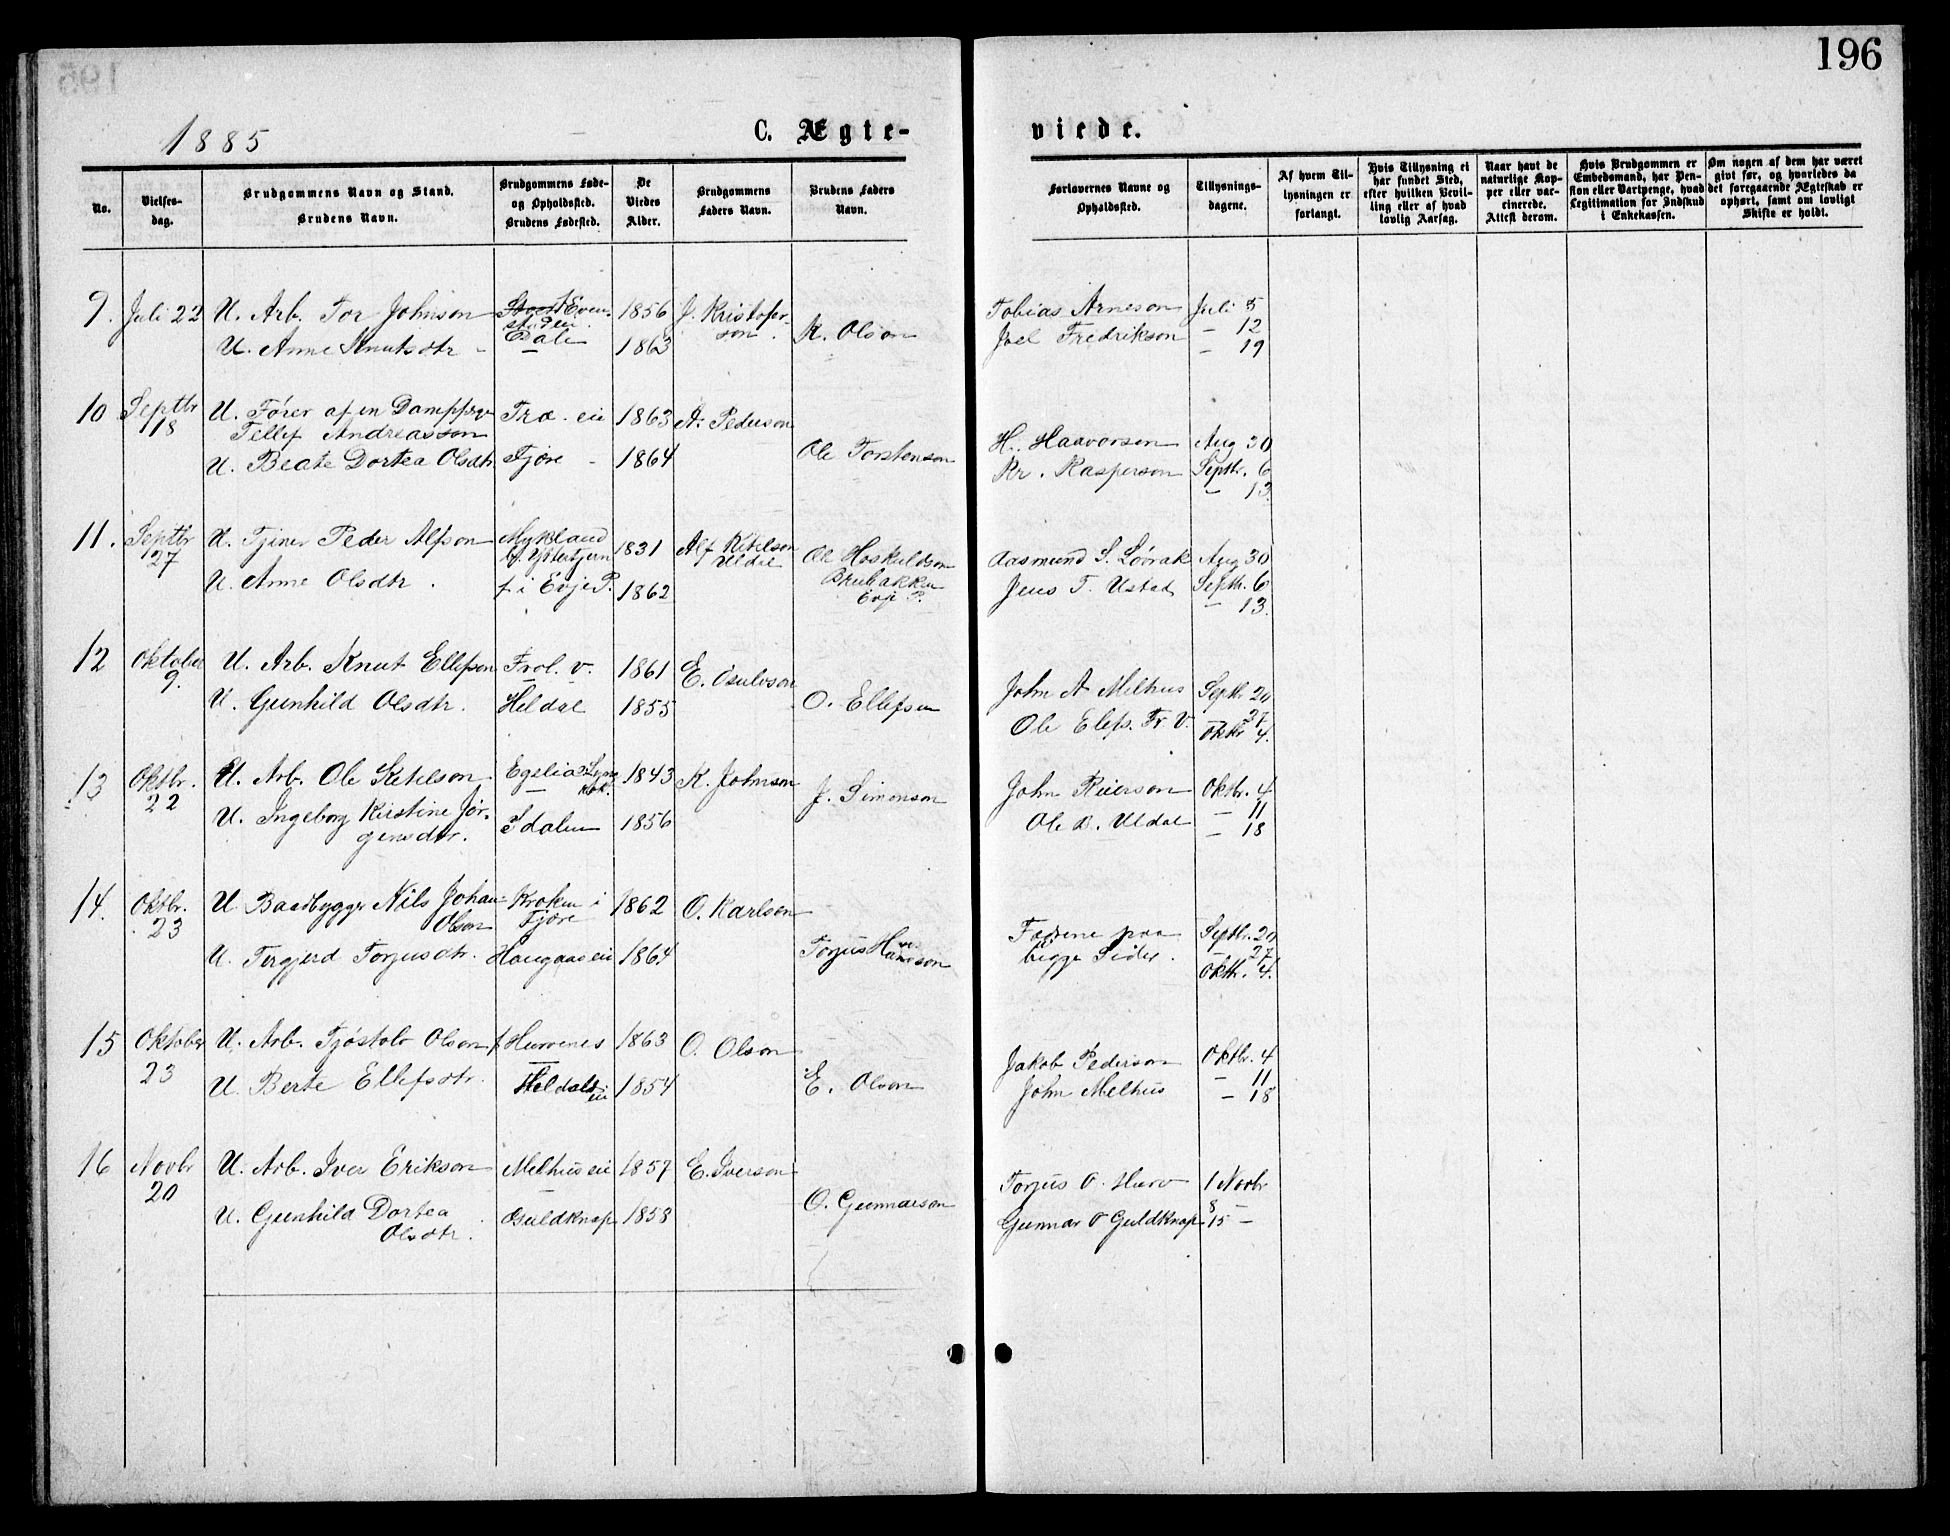 196
1885
C. Ægte-
viede.
No.
Vielses-
dag.
Brudgommens Navn og Stand.
Brudens Navn.
Brudgommens Føde-
og Opholdssted.
Brudens Fødested.
De
Viedes
Alder.
Brudgommens
Faders Navn.
Brudens Faders
Navn.
Forlovernes Navne og
Opholdssted.
Tillysnings-
dagene.
Af hvem Til-
lysningen er
forlangt.
Hvis Tillysning ei
har fundet Sted,
efter hvilken Bevil-
ling eller af hvad
lovlig Aarsag.
Naar havt de
naturlige Kop-
per eller vac-
cinerede.
Attest derom.
Hvis Brudgommen er
Embedsmand, har Pen-
sion eller Vartpenge, hvad
Legitimation for Indskud
i Enkekassen.
Om nogen af dem har været
givt før, og hvorledes da
det foregaaende Ægteskab er
ophørt, samt om lovligt
Skifte er holdt.
9. Juli 22 U. Arb. Tor Johnson 1856 J. Kristofer-
son.
U. Anne Knutsdtr 1863 K. Olson
Tobias Arneson Juli 5
Joel Fredrikson — 12
— 19
10 Septbr 18 U. Fører af en Dampsag
Tellef Andreasson Træ. eie 1863 A. Pederson
U. Beate Dortea Olsdtr. Fjære 1864 Ole Torstenson
H. Haavorsen Aug 30
Kr. Kasperson Septbr. 6
— 13.
11. Septbr 27 U. Tjener Peder Alfson Mykland 1831 Alf Ketelson
Uldal
U. Anne Olsdtr. f. i Evje P. 1862 Ole Hoskuldson
Brubakken
Evje P.
Aasmund S. Løvrak Aug 30
Jens T. Ustad Septbr. 6
— 13.
12 Oktober 9. U. Arb. Knut Ellefsen Frol. v. 1861 E. Osulvson
U. Gunhild Olsdtr. Heldal 1855 O. Ellefsen
John A Melhus Septbr. 20
Ole Elefs. Fr. V. — 27
Oktbr 4.
13 Oktbr. 22 U. Arb. Ole Ketelson Egelia 1843 K. Johnson
U. Ingeborg Kirstine Jør-
gensdtr. Idalen 1856 J. Simonson
John Reierson Oktbr. 4
— 11
Ole B. Uldal — 18
14. Oktbr. 23 U Baadbygger Nils Johan
Olson Kroken i
Fjære 1862 O. Karlson
U. Tergjerd Torjusdtr. Haugaas eie 1864 Torjus
Fædrene paa Septbr. 20
begge Sider. — 27
Oktbr. 4.
15 Oktober 23 U. Arb. Tjøstolv Olson f Hurvenes 1863 O. Olson
U. Berte Ellefsdtr. Heldals
eie 1854 E. Olson
Jakob Pederson Oktbr. 4
— 11
John Melhus — 18
16 Novbr 20 U. Arb. Iver Erikson Melhus eie 1857 E. Iverson
U. Gunhild Dortea
Olsdtr. Guldknap 1858 O. Gunnarson
Torjus O. Hurv 1 Novbr
8 —
Gunnar O Guldknap 15 —